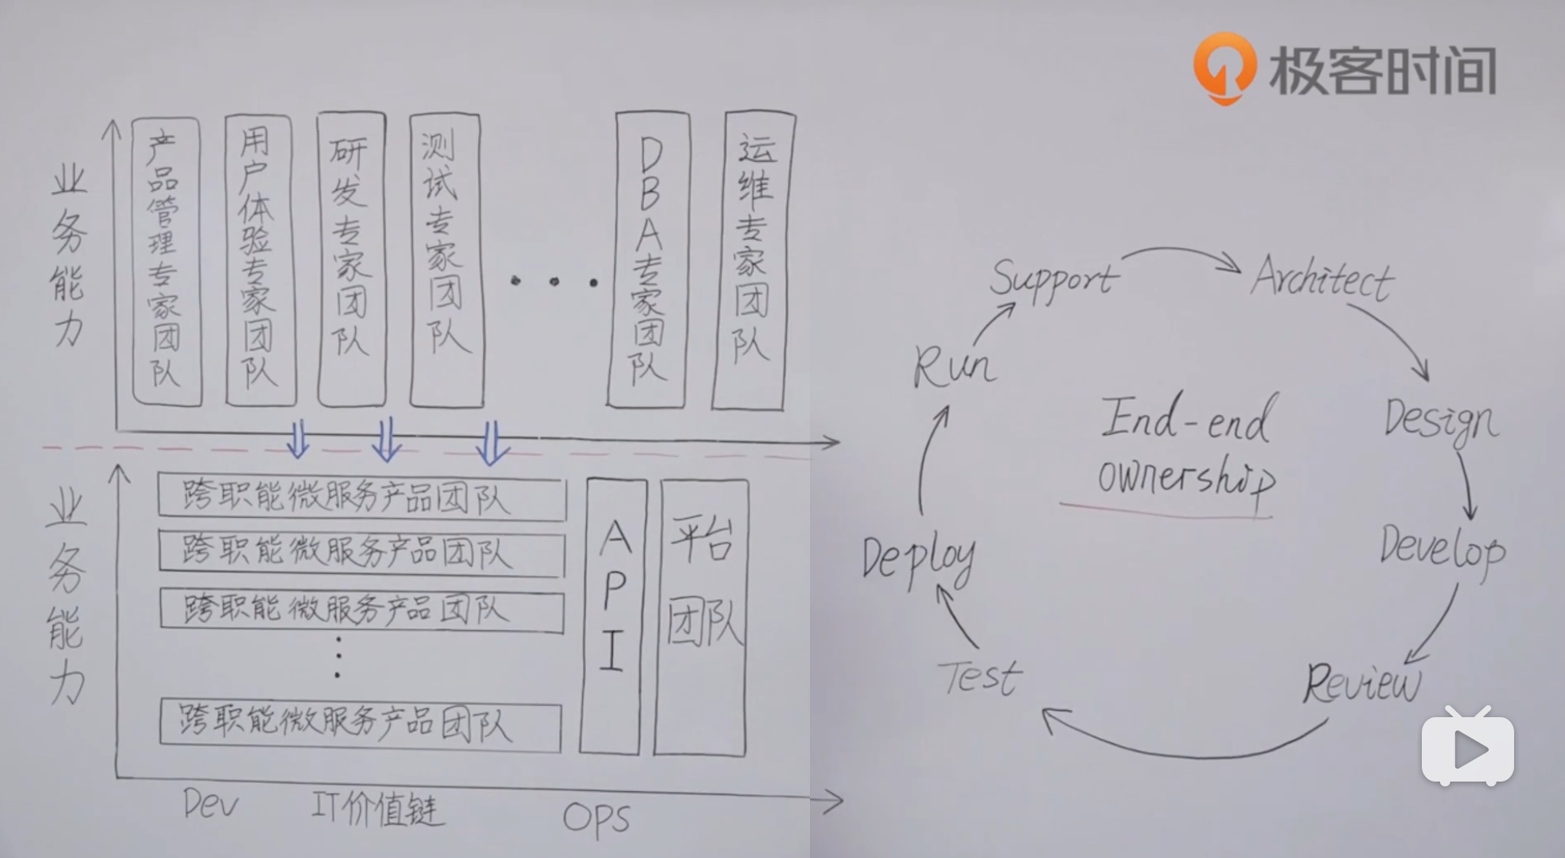 极客时间
业务能力
产品管理专家团队
用户体验专家团队
研发专家团队
测试专家团队
...
DBA专家团队
运维专家团队
业务能力
跨职能微服务产品团队
跨职能微服务产品团队
跨职能微服务产品团队
跨职能微服务产品团队
API
平台团队
Dev
IT价值链
OPS
Support
Architect
Design
Develop
Review
Test
Deploy
Run
End-end
ownership